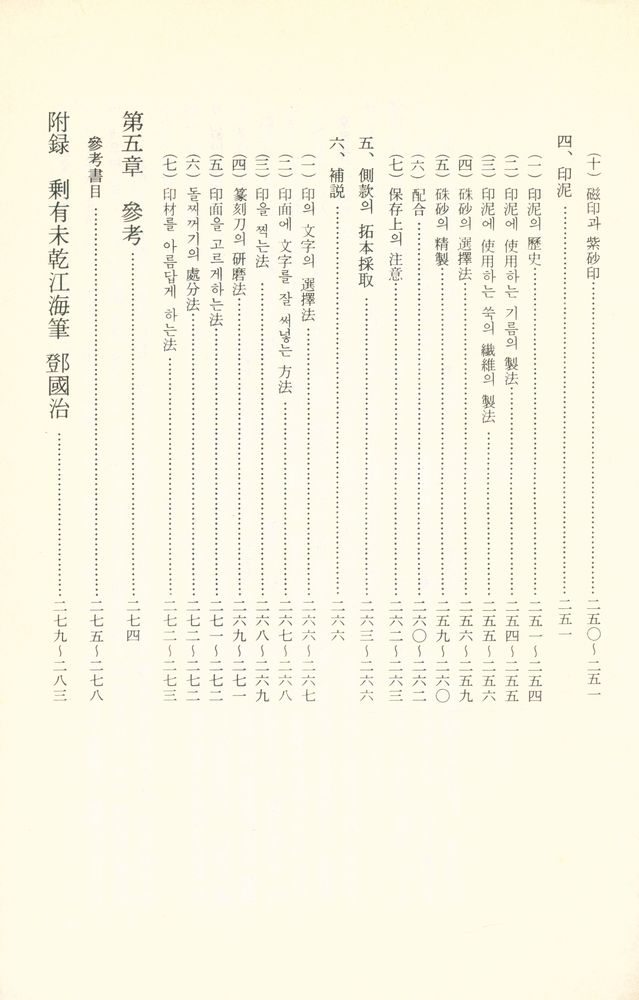 (十) 磁印과 紫砂印…………二五〇~二五一
四、印泥…………二五一
(一) 印泥의 歷史…………二五一~二五四
(二) 印泥에 使用하는 기름의 製法…………二五四~二五五
(三) 印泥에 使用하는 쑥의 纖維의 製法…………二五五~二五六
(四) 硃砂의 選擇法…………二五六~二五九
(五) 硃砂의 精製…………二五九~二六〇
(六) 配合…………二六〇~二六二
(七) 保存上의 注意…………二六二~二六三
五、側款의 拓本採取…………二六三~二六六
六、補説…………二六六
(一) 印의 文字의 選擇法…………二六六~二六七
(二) 印面에 文字를 잘 써넣는 方法…………二六七~二六八
(三) 印을 찍는法…………二六八~二六九
(四) 篆刻刀의 研磨法…………二六九~二七一
(五) 印面을 고르게하는法…………二七一~二七二
(六) 돌찌꺼기의 處分法…………二七二~二七二
(七) 印材를 아름답게 하는法…………二七二~二七三
第五章 參考…………二七四
參考書目…………二七五~二七八
附録 剩有未乾江海筆 鄧國治…………二七九~二八三